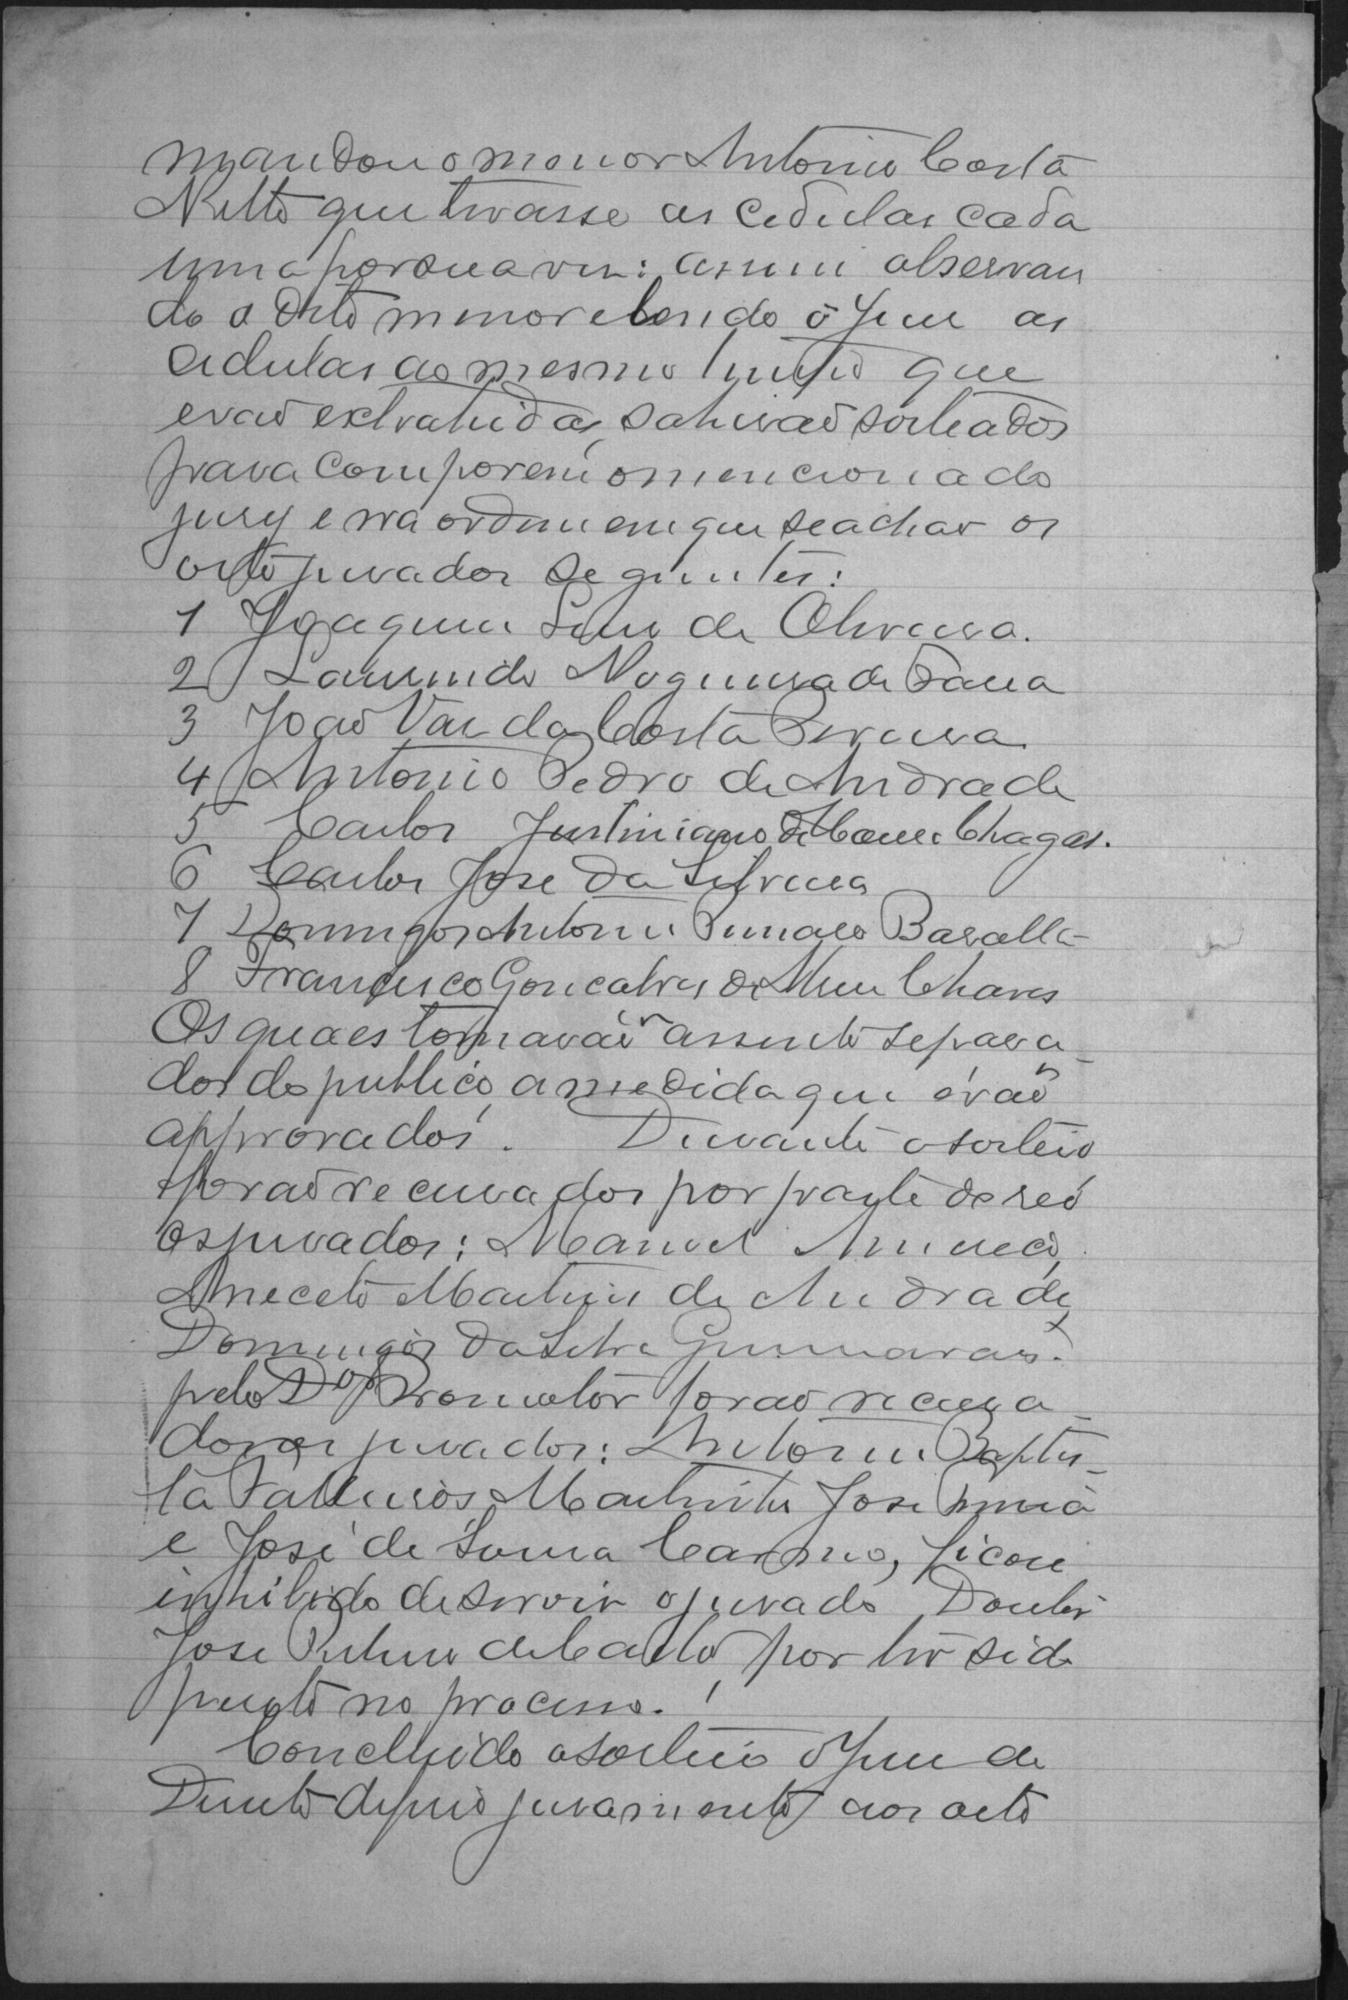 mandou o menor Antonio Costa
Netto que tirasse as cedulas cada
uma por sua vez: assim observan
do o dito menor e lendo o Juiz as
cedulas ao mesmo tempo que
erão extrahidas, sahirão sorteados
para comporem o mencionado
jury e na ordem em que se achar os
oito jurados seguintes:
1 Joaquim Lino de Oliveira.
2 Laurindo Nogueira de Faria
3 João Vaz da Costa Pereira
4 Antonio Pedro de Andrade
5 Carlos Justiniano das Chagas.
6 Carlos José da Silveira
7 Domingos Antonio
8 Francisco Gonçalves de Chaves
Os quaes tomavão assento separa-
dos do publico, a medida que erão
approvados. Durante o sorteio
forão recusados por parte do reó
os jurados: Manoel
Aneceto Martins de Andrade,
Domingos da Silva Guimarães.
pelo Dor Promotor forão recusa-
dos os jurados: Antonio Baptis-
ta José
e José de Souza Carmo, ficou
inhibido de servir o jurado Doutor
José de Castro por ter sido
perito no processo.
Concluido o sorteio o Juiz de
Direito deferio juramento aos oito